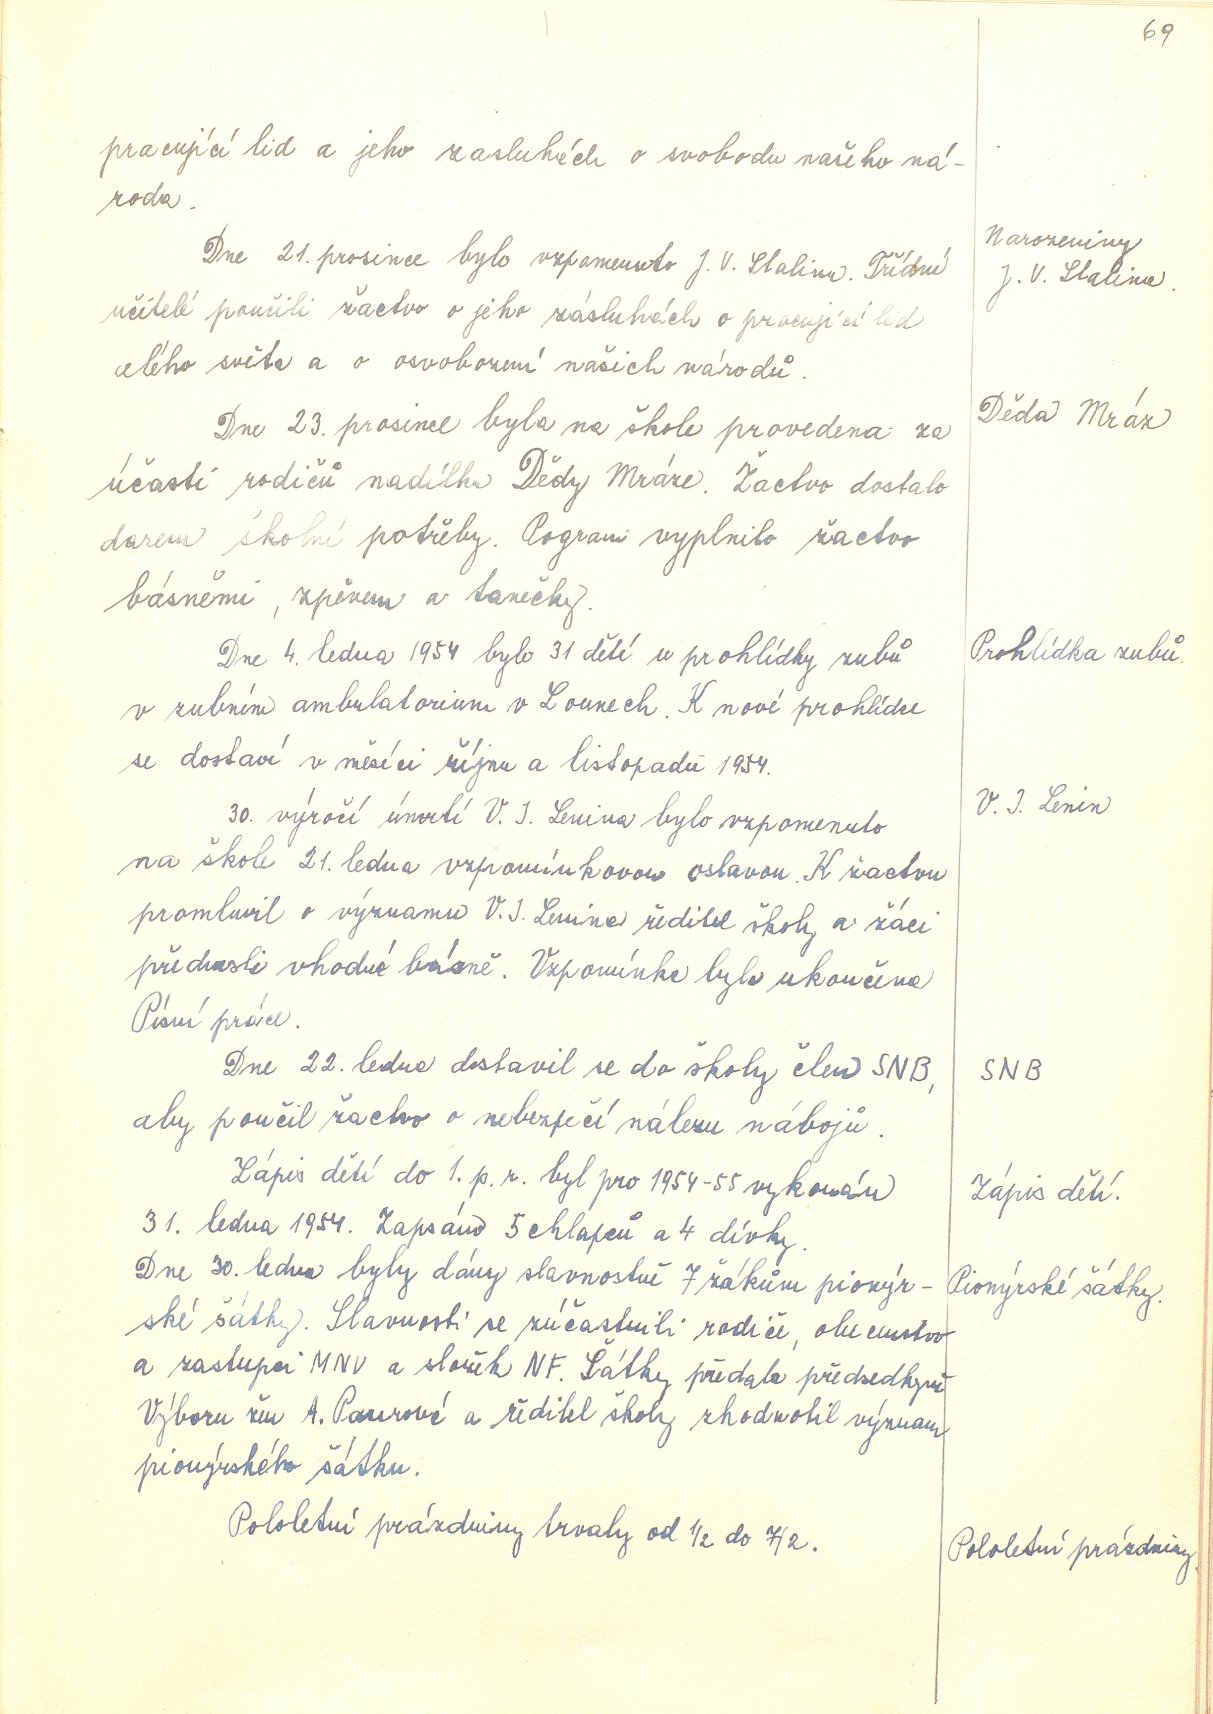 69
pracující lid a jeho zasluhách o svobodu našeho ná-
roda.
Dne 21. prosince bylo vzpomenuto J. V. Stalina. Třídní
Narozeniny
J. V. Stalina.
učitelé poučili žactvo o jeho zásluhách o pracující lid
celého světa a o osvobození našich národů.
Dne 23. prosince byla na škole provedena za
Děda Mráz
účasti rodičů nadílka Dědy Mráze. Žactvo dostalo
darem školní potřeby. Pogram vyplnilo žactvo
básněmi, zpěvem a tanečky.
Dne 4. ledna 1954 bylo 31 dětí u prohlídky zubů
Prohlídka zubů.
v zubním ambulatorium v Lounech. K nové prohlídce
se dostaví v měsíci říjnu a listopadu 1954.
30. výročí úmrtí V. I. Lenina bylo vzpomenuto
V. I. Lenin
na škole 21. ledna vzpomínkovou oslavou. K žactvu
promluvil o významu V. I. Lenina ředitel školy a žáci
přednesli vhodné básně. Vzpomínka byla ukončena
Písní práce.
Dne 22. ledna dostavil se do školy člen SNB,
SNB
aby poučil žactvo o nebezpečí nálezu nábojů.
Zápis dětí do 1. p. r. byl pro 1954-55 vykonán
Zápis dětí.
31. ledna 1954. Zapsáno 5 chlapců a 4 dívky.
Dne 30. ledna byly dány slavnostně 7 žákům pionýr-
Pionýrské šátky.
ské šátky. Slavnosti se zúčastnili rodiče, obecenstvo
a zastupci MNV a složek NF. Šátky předala předsedkyně
Výboru žen A. a ředitel školy zhodnotil význam
pionýrského šátku.
Pololetní prázdniny trvaly od 1/2 do 7/2.
Pololetní prázdniny.